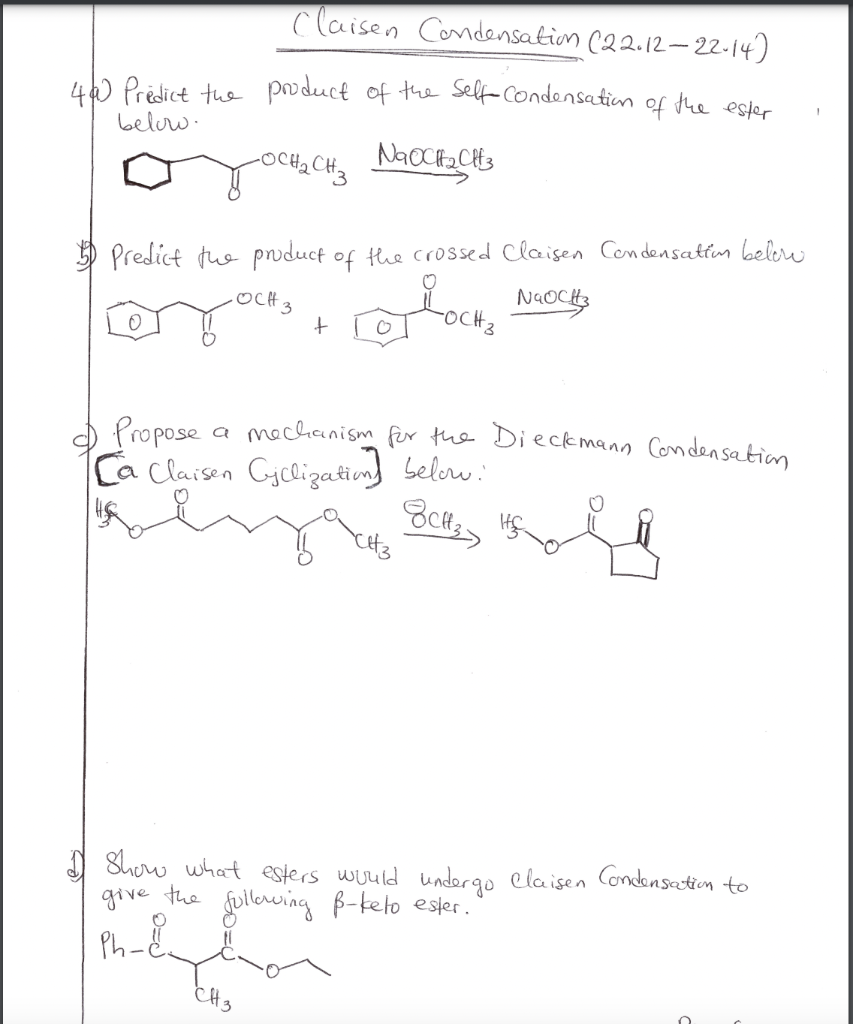 Claisen Condensation (22.12-22.14)
4a) Predict the product of the Self-Condensation of the ester
below.
OCH2CH3 NaOCH2CH3
O
b) Predict the product of the crossed Claisen Condensation below
O
OCH3 NaOCH3
O + O OCH3
O
c) Propose a mechanism for the Dieckmann Condensation
[a Claisen Cyclization] below:
H3C O O O CH3 O
⊖OCH3
H3C O O O
d) Show what esters would undergo Claisen Condensation to
give the following β-keto ester.
O O
Ph-C C
O
CH3